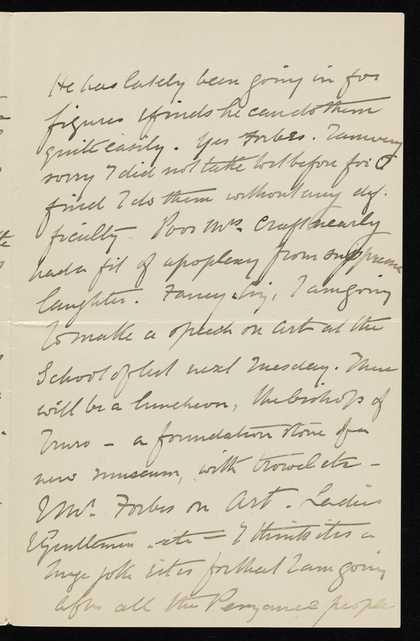 He has lately been going in for
figures & finds he can do them
quite easily. Yes Forbes. I am very
sorry I did not take to it before for I
find I do them without any dif-
ficulty. Poor Mrs. Craft nearly
had a fit of apoplexy from suppressed
laughter. Fancy, I am going
to make a speech on Art at the
School of Art next Tuesday. There
will be a luncheon, the bishop of
Truro – a foundation stone of a
new museum, with trowel etc –
& Mr. Forbes on Art. Ladies
& Gentlemen etc – I think its a
huge joke & it is for that I am going
after all the Penzance people